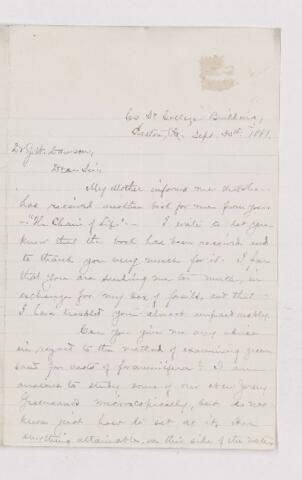 College Building,
Easton, Pa. Sept. 30th. 1881.
Dr J. W. Dawson,
Dear Sir:
My Mother informs me that she
has received another book for me from you
"The Chain of Life" — I write to let you
know that the book has been received and
to thank you very much for it. I fear
that you are sending me too much, in
exchange for my box of fossils, and that
I have troubled you almost unpardonably.
Can you give me any advice
in regard to the method of examining green
sand for casts of foraminifera? I am
anxious to study some of our New Jersey
Greensands microscopically, but do not
know just how to set at it. Has
anything attainable, on this side of the water